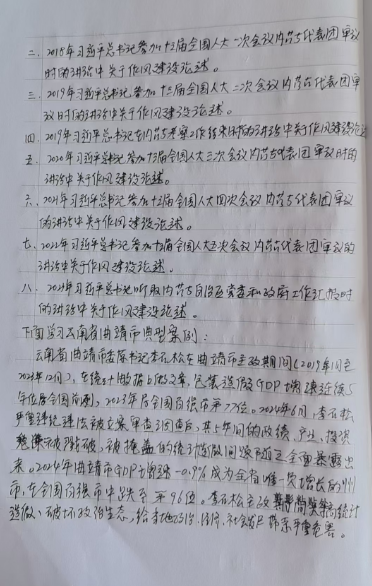 二、2018年习近平总书记参加十三届全国人大一次会议内蒙古代表团审议
时的讲话中关于作风建设论述。
三、2019年习近平总书记参加十三届全国人大二次会议内蒙古代表团审
议时的讲话中关于作风建设论述。
四、2019年习近平总书记在内蒙考察工作结束时的讲话中关于作风建设论述
五、2020年习近平总书记参加十三届全国人大三次会议内蒙古代表团审议时的
讲话中关于作风建设论述。
六、2021年习近平总书记参加十三届全国人大四次会议内蒙古代表团审议
的讲话中关于作风建设论述。
七、2022年习近平总书记参加十三届全国人大五次会议内蒙古代表团审议的
讲话中关于作风建设论述。
八、2023年习近平总书记听取内蒙古自治区党委和政府工作汇报时
的讲话中关于作风建设论述。
下面学习云南省曲靖市典型案例：
云南省曲靖市委原书记李石松在曲靖市主政期间（2019年10月至
2023年12月），在统计数据上做文章，
年位居全国前列，2023年居全国百强市第77位。2024年6月，李石松
严重违纪违法被立案审查调查后，其5年间的政绩、产业、投资
被掩盖的统计造假问题随之全面暴露出
来。2024年曲靖市GDP增速-0.9%成为全省唯一负增长的州
市，在全国百强市中跌至第96位。李石松主政期间统计
造假，破坏政治生态，给当地政治、经济、社会发展带来严重危害。